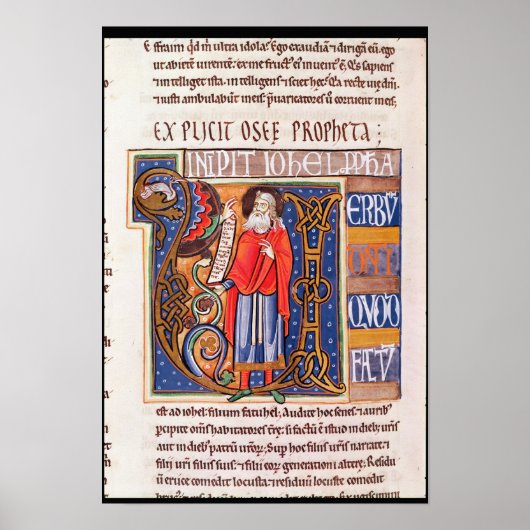 Effraim qđ m̃ ultra idola? Ego exaudiã & dirigã eũ. ego
ut abietẽ uirentẽ: ex me fruct᷒ t᷒ inuent᷒ ẽ. Q̃s sapiens
& intelleget ista. intelligens & sciet hęc? Q̃a rectę uię dñi,
& iusti ambulabũt in eis: p̃uaricatores ũ corruent in eis;
EXPLICIT OSEE PROPHETA;
INCIPIT IOHEL PPHA
V ERBŪ
QVOD
FACTŪ
est ad iohel: filium fatuhel; Audite hoc senes: & aurib᷒
percipite om̃s habitatores tr̃ę: si factũ ẽ istud in dieb᷒ ur̃is,
aut in dieb᷒ patrũ ur̃orũ; Sup̃ hoc filiis ur̃is narrate: &
filij ur̃i filiis suis: & filii eor̃ generationi alterę; Residũ
u erucę comedit locusta: & residuũ locustę comedit